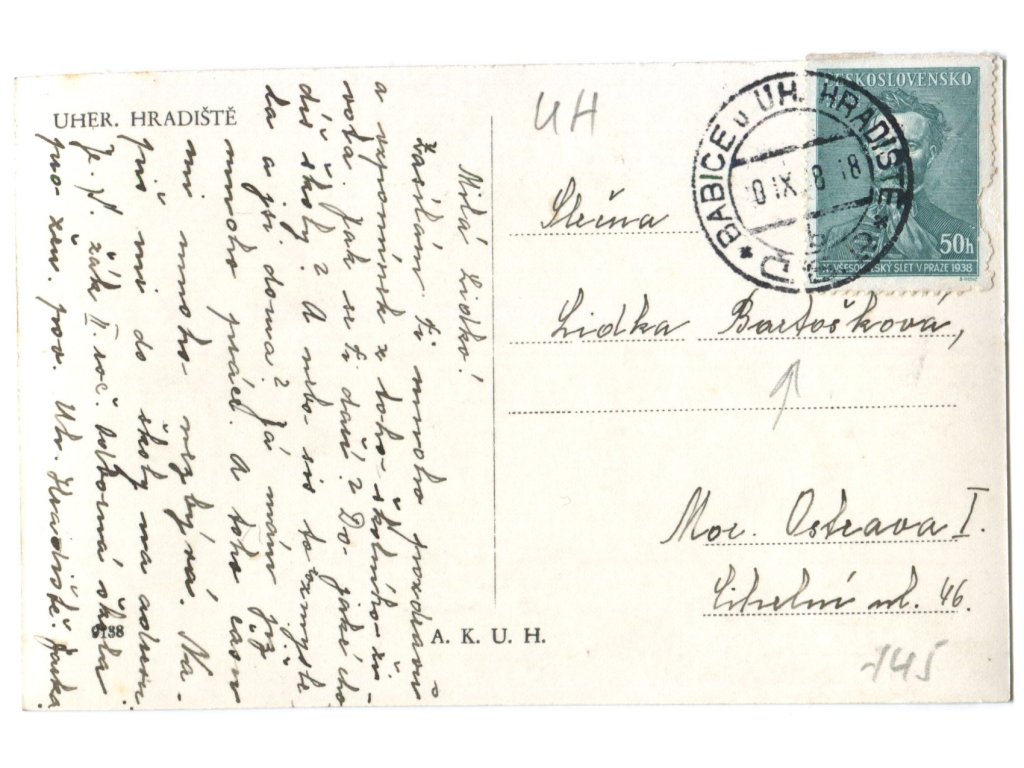 UHER. HRADIŠTĚ
Milá Lidko!
Zasílám ti mnoho pozdravů
a vzpomínek z toho-školního-ži-
vota. Jak se ti daří? Do jaké cho
díš školy? A nebo sis to rozmysle
la a jsi doma? Já mám již
mnoho práce a toho času
mi mnoho nezbývá. Na
piš mi do školy na adresu
Je. N. žák II. roč. odborná škola
pro žen. pov. Uh. Hradiště.
9138
A. K. U. H.
UH
BABICE u UH. HRADIŠTĚ
IX 38 18
ČESKOSLOVENSKO
50h
X. VŠESOKOLSKÝ SLET V PRAZE 1938
Slečna
Lidka Bartoškova,
Mor. Ostrava I.
Cihelní ul. 46.
145